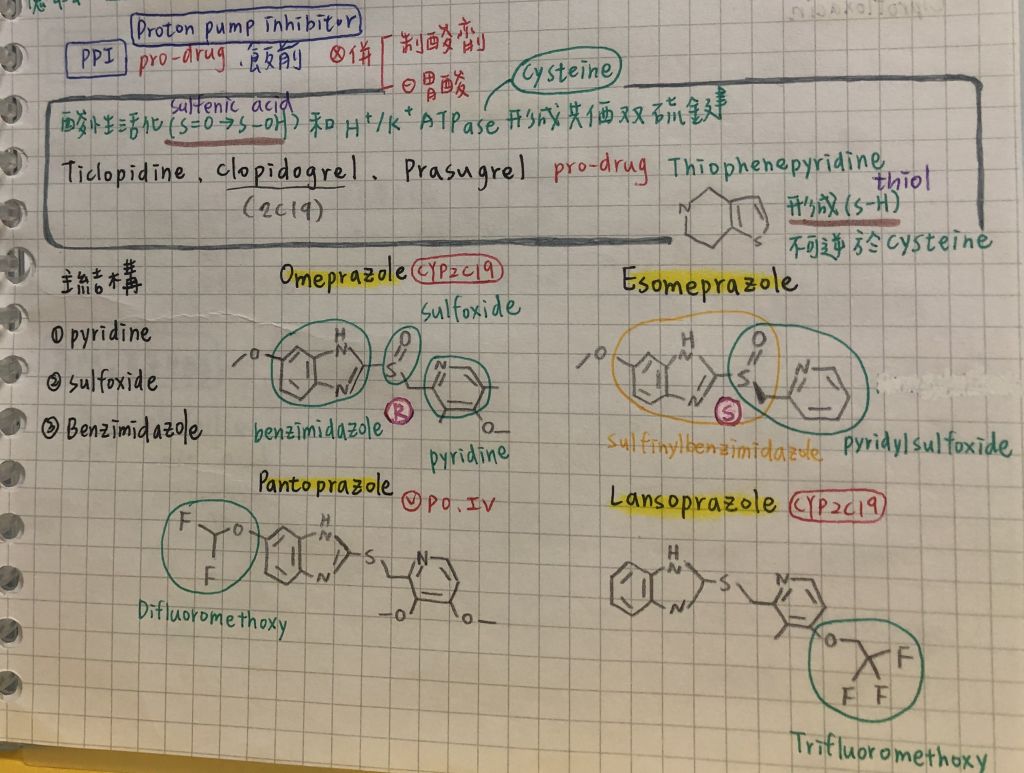 Proton pump inhibitor
PPI pro-drug.飯前 ⊗併 制酸劑
⊖胃酸
cysteine
sulfenic acid
酸性活化(S=O→S-OH) 和 H+/K+ ATPase 形成共価双硫鍵
Ticlopidine、clopidogrel. Prasugrel pro-drug Thiophenepyridine
(2C19)
thiol
形成(S-H)
不可逆於cysteine
N
S
主結構
① pyridine
② sulfoxide
③ Benzimidazole
Omeprazole CYP2C19
sulfoxide
O H N N O S N O
R
benzimidazole
pyridine
Esomeprazole
O H N N O S N
S
sulfinylbenzimidazole
pyridylsulfoxide
Pantoprazole ✓ PO.IV
F F O H N N S N O O
Difluoromethoxy
Lansoprazole CYP2C19
H N N S N O F F F
Trifluoromethoxy